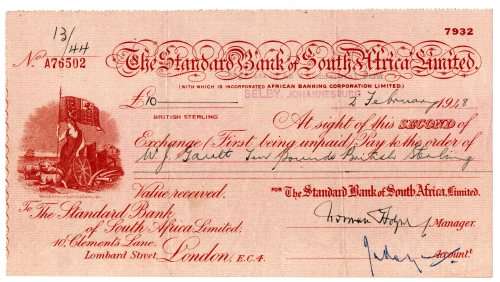 13/44
7932
No. A76502
The Standard Bank of South Africa Limited.
(WITH WHICH IS INCORPORATED AFRICAN BANKING CORPORATION LIMITED.)
SELBY, JOHANNESBURG
£10 2 February 1948
BRITISH STERLING
At sight of this SECOND of
Exchange (First, being unpaid) Pay to the order
of W. J. Gault Ten pounds British Sterling
Value received.
FOR The Standard Bank of South Africa, Limited.
To The Standard Bank
of South Africa Limited,
10, Clements Lane,
Lombard Street, London, E.C.4.
Norman Manager.
Account!